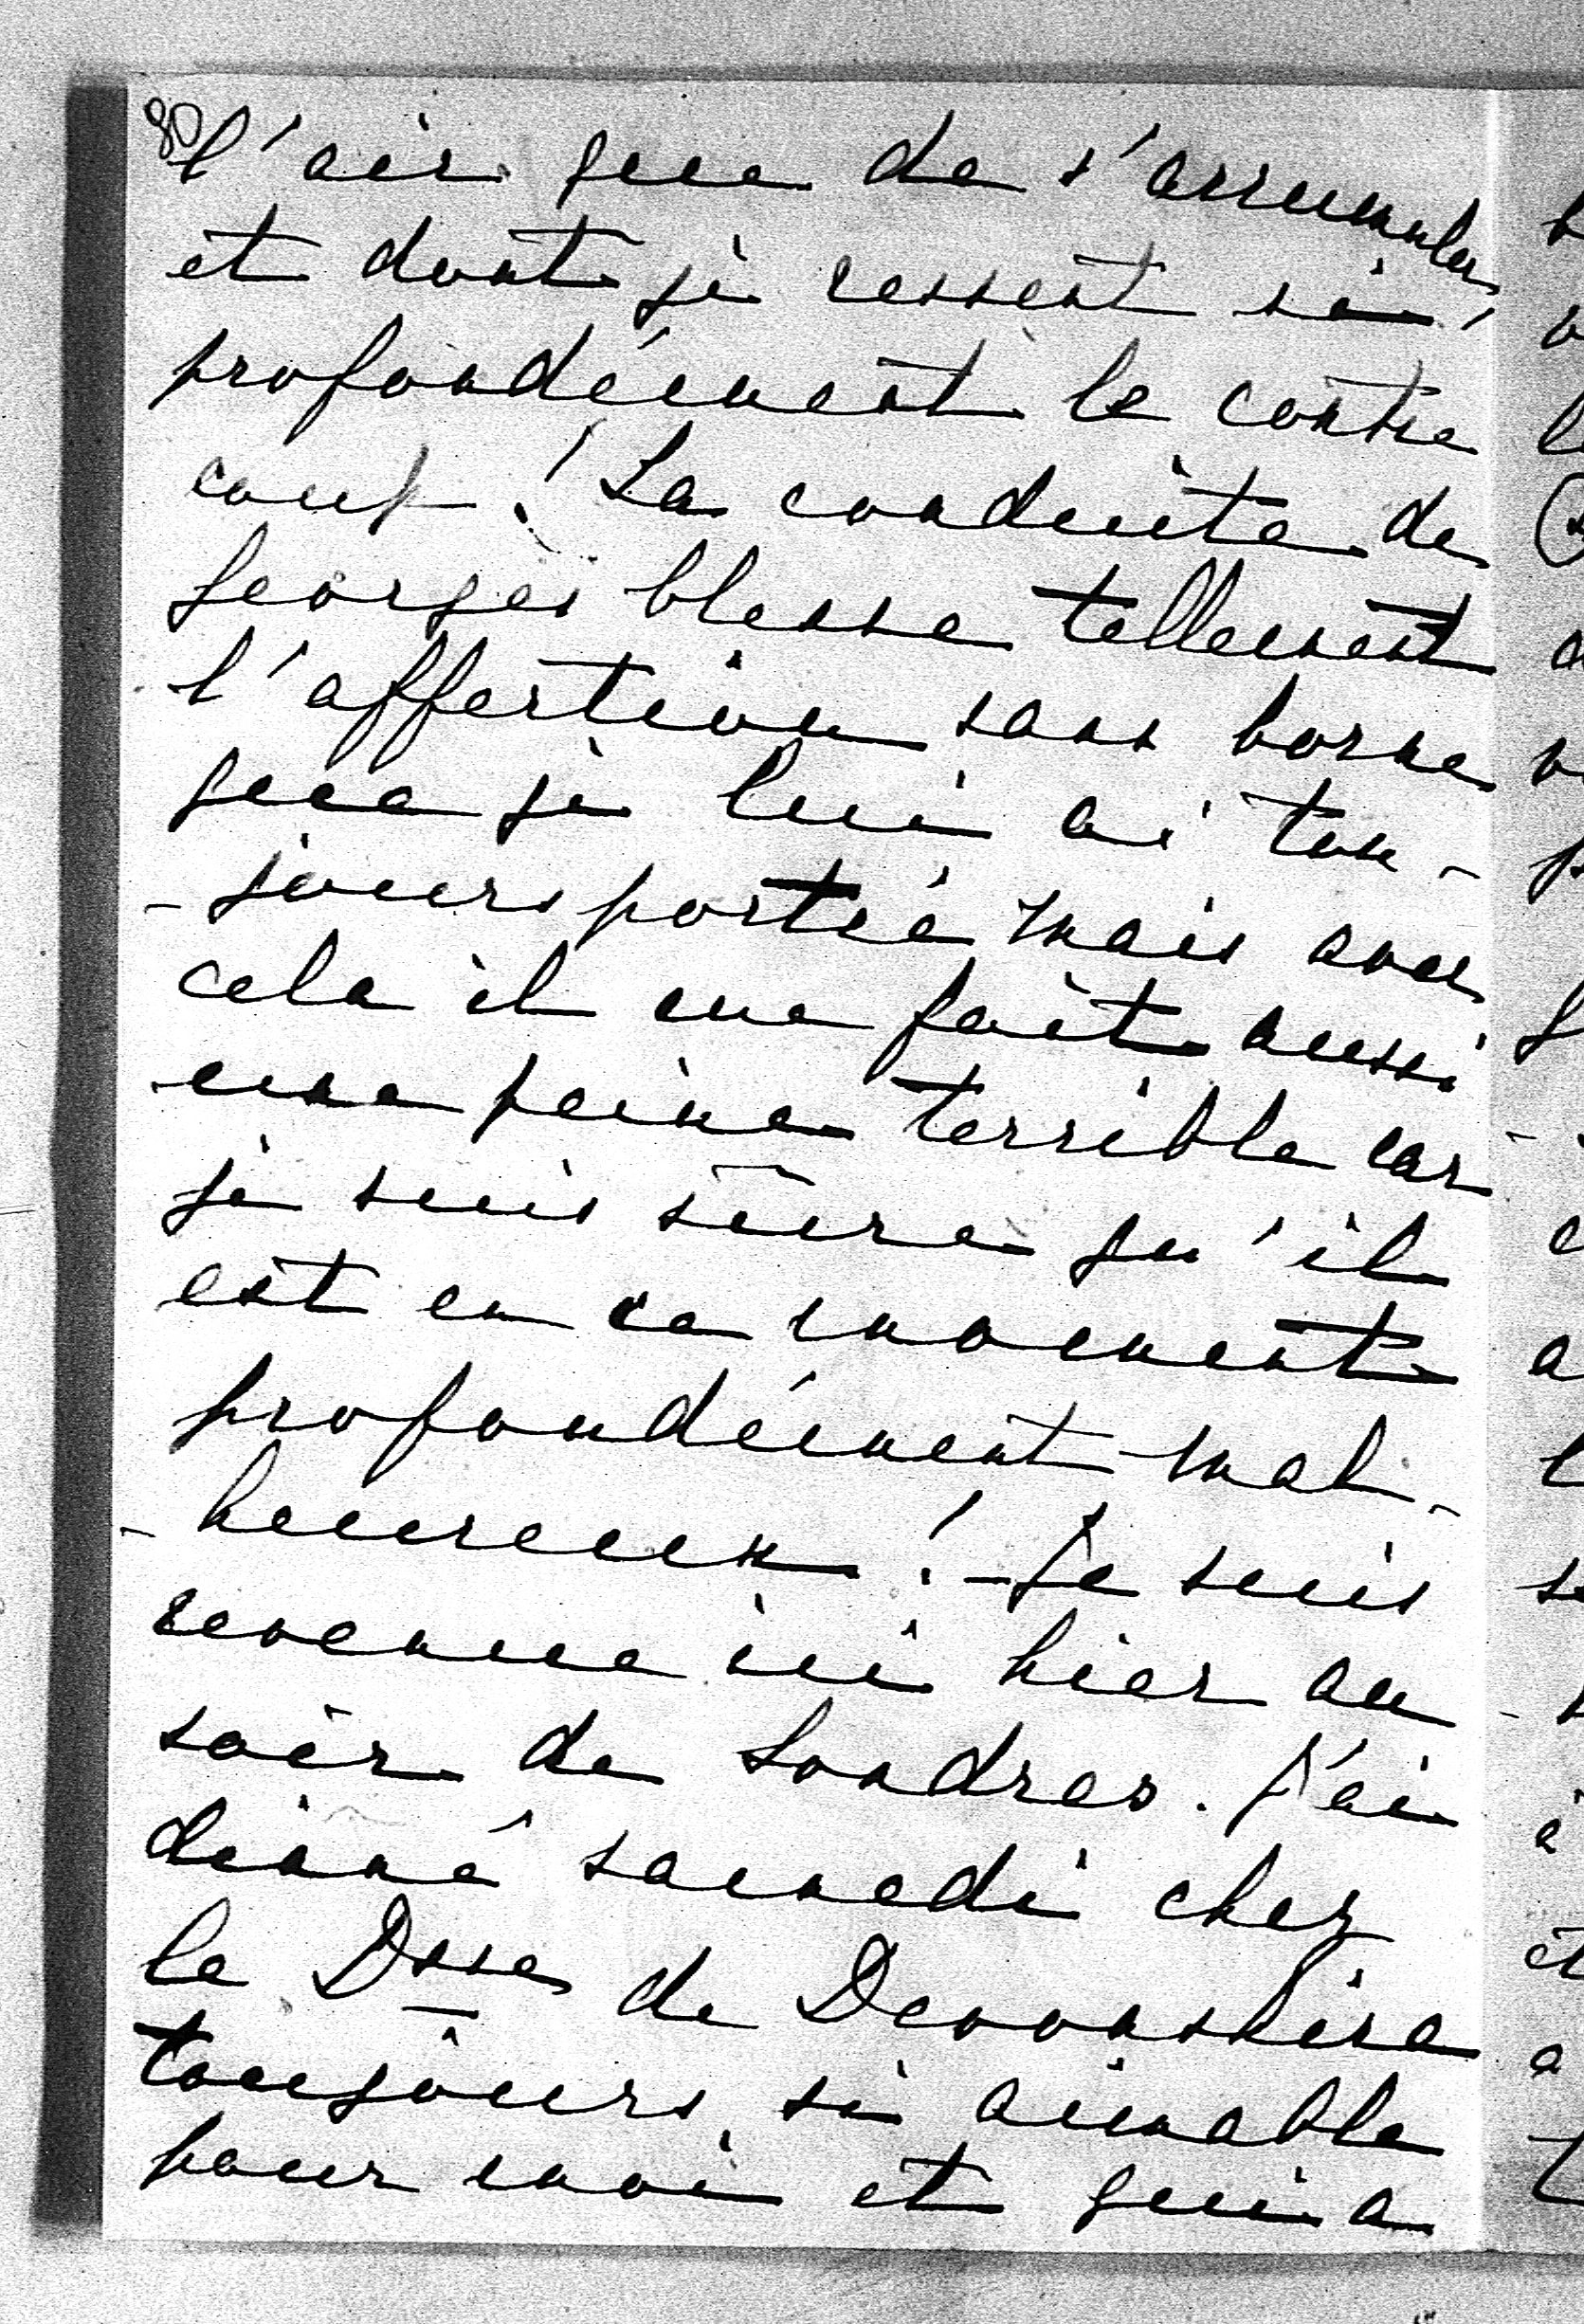 80
l'air que de s'accumuler
et dont je ressent si
profondément le contre
coup! La conduite de
Georges blesse tellement
l'affection sans borne
que je lui ai tou-
-jours portée mais avec
cela il me fait aussi
une peine terrible car
je suis sûre qu'il
est en ce moment
profondément mal-
-heureux! - Je suis
revenue ici hier au
soir de Londres. J'ai
dinné samedi chez
la Dsse de Devonshire
toujours si aimable
pour moi et qui a